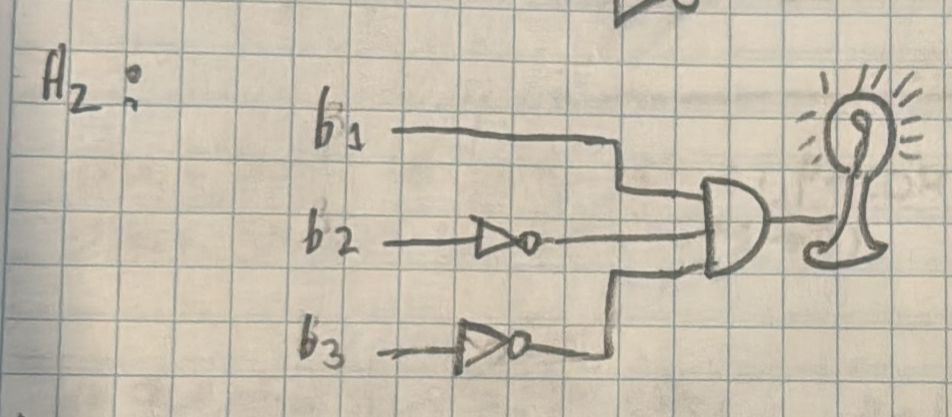 A₂:
b₁
b₂
b₃